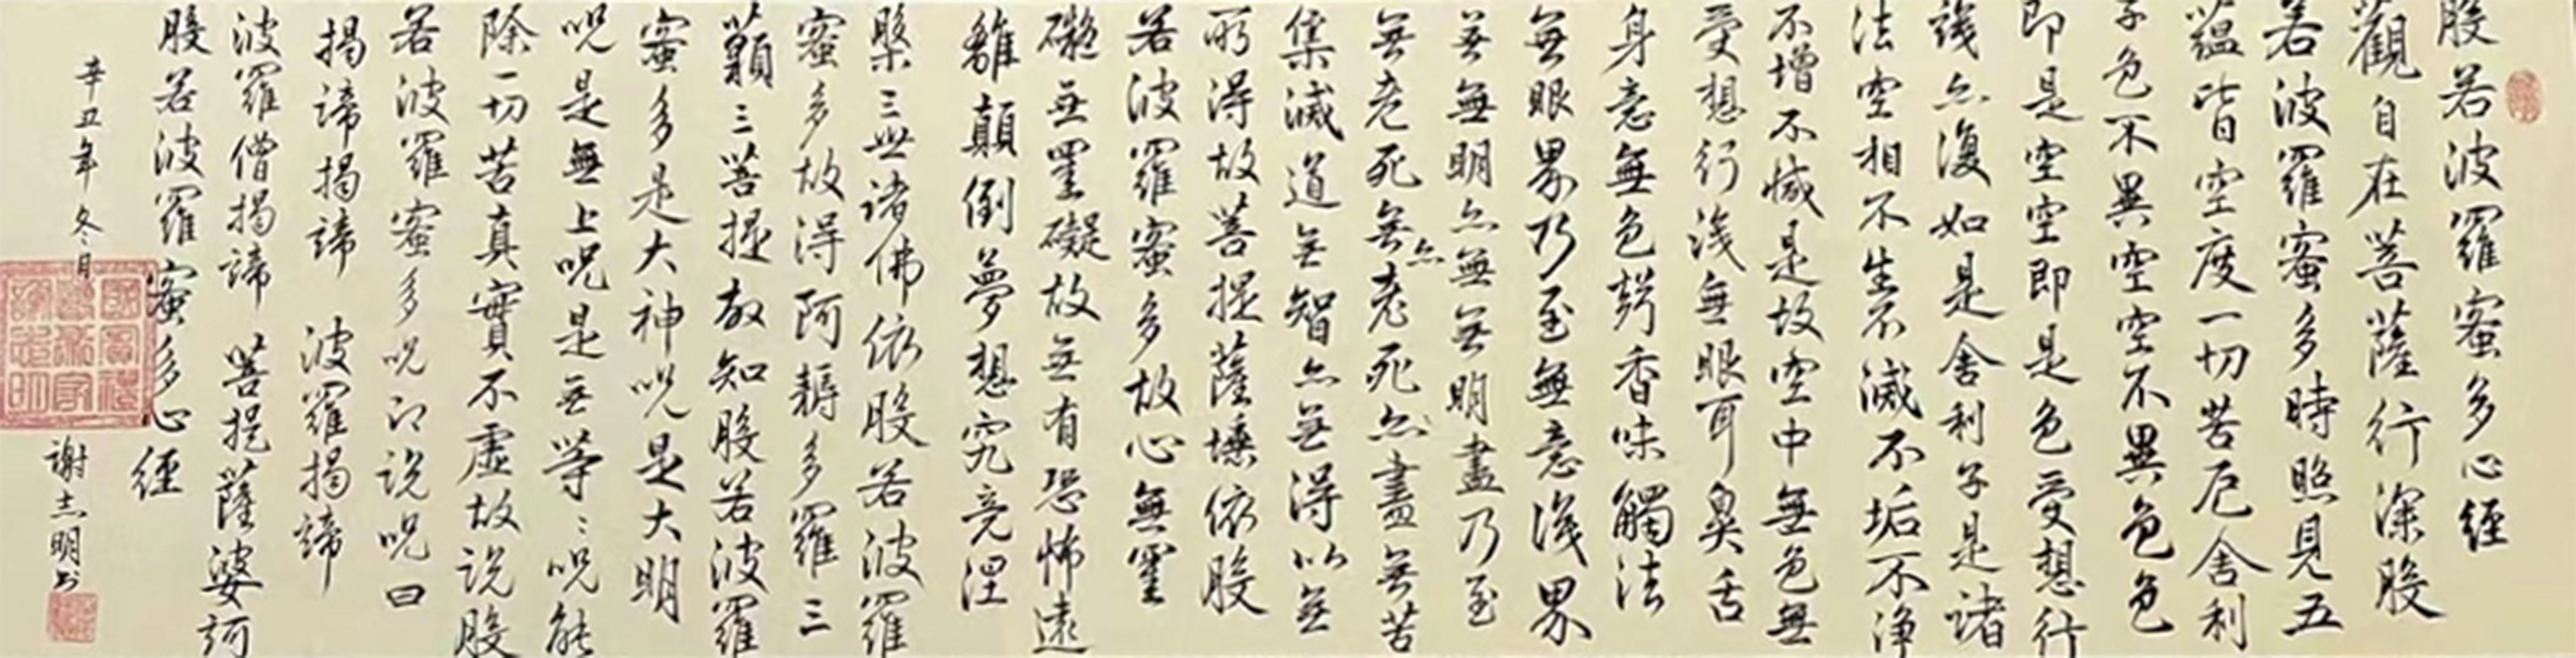 般若波羅蜜多心經
觀自在菩薩行深般
若波羅蜜多時照見五
蘊皆空度一切苦厄舍利
子色不異空空不異色色
即是空空即是色受想行
識亦復如是舍利子是諸
法空相不生不滅不垢不淨
不增不減是故空中無色無
受想行識無眼耳鼻舌
身意無色聲香味觸法
無眼界乃至無意識界
無無明亦無無明盡乃至
無老死無亦老死亦盡無苦
集滅道無智亦無得以無
所得故菩提薩埵依般
若波羅蜜多故心無罣
礙無罣礙故無有恐怖遠
離顛倒夢想究竟涅
槃三世諸佛依般若波羅
蜜多故得阿耨多羅三
藐三菩提故知般若波羅
蜜多是大神咒是大明
咒是無上咒是無等々咒能
除一切苦真實不虛故說般
若波羅蜜多咒即說咒曰
揭諦揭諦 波羅揭諦
波羅僧揭諦 菩提薩婆訶
般若波羅蜜多心經
辛丑年冬月 謝志明書